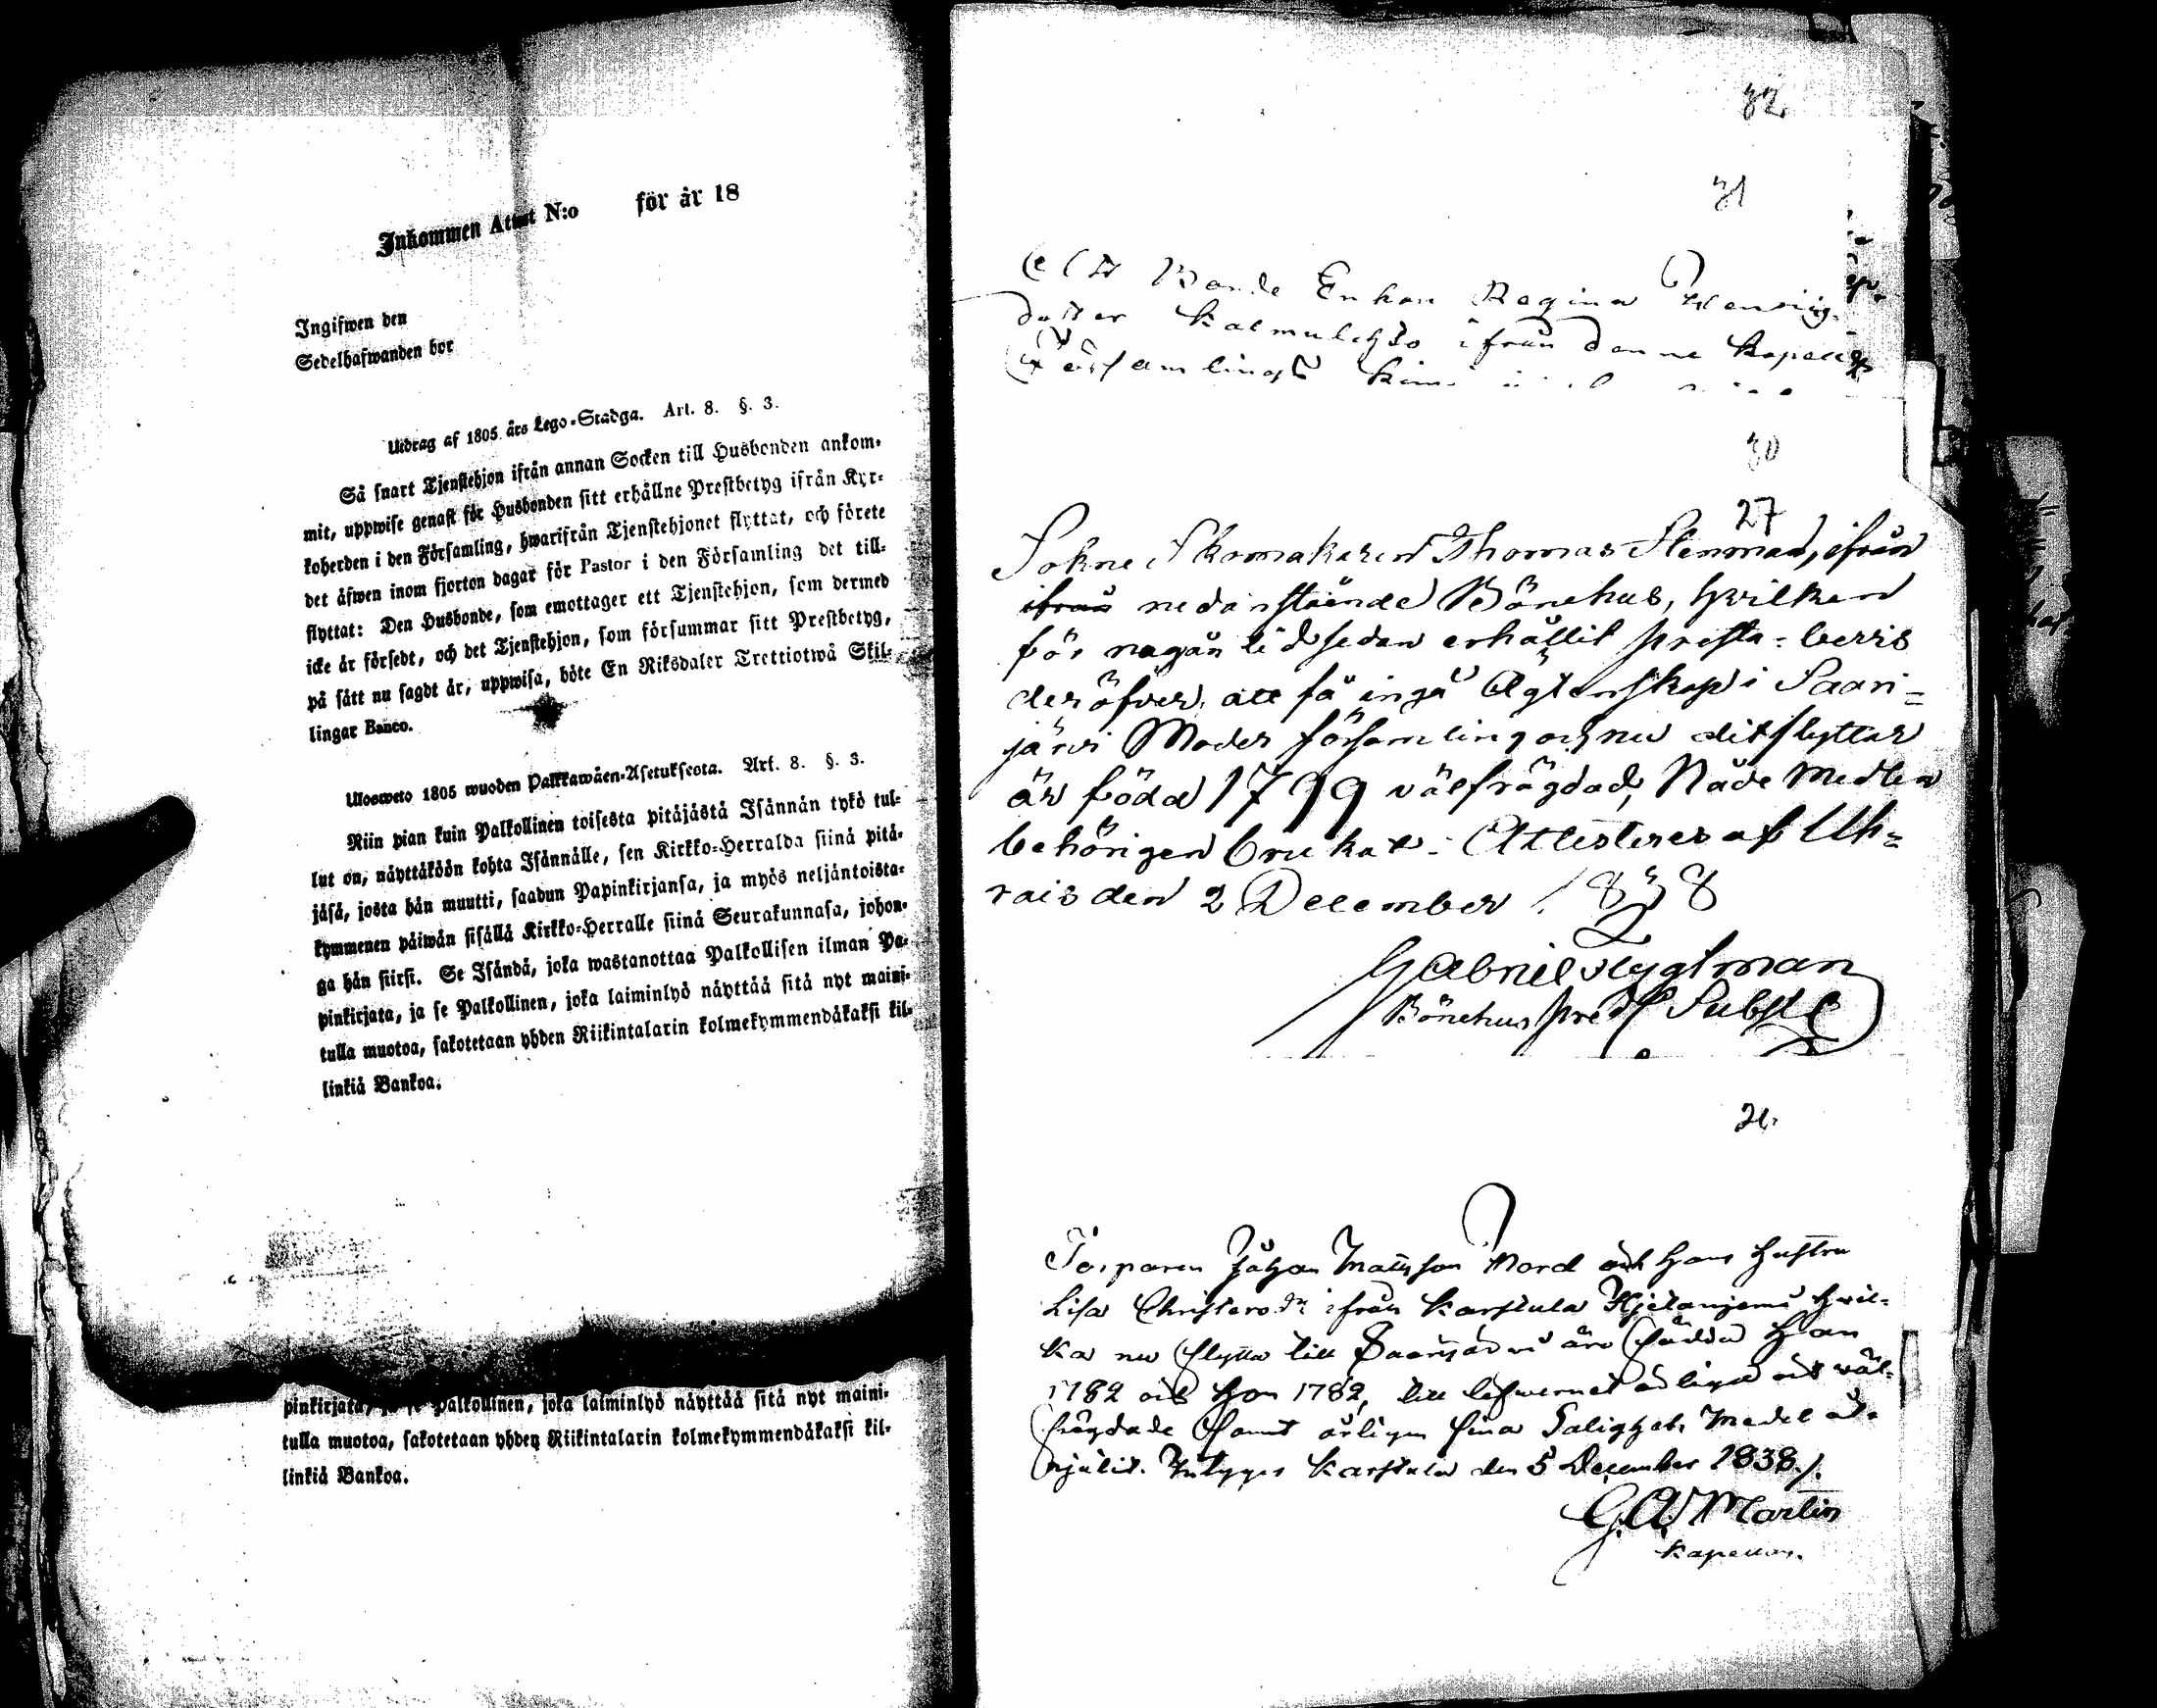 Inkommen Attest N:o för år 18
Ingifwen den
Sedelhafwanden bor
Utdrag af 1805 års Lego-Stadga. Art. 8. §. 3.
Så snart Tjenstehjon ifrån annan Socken till Husbonden ankom-
mit, uppwise genast för Husbonden sitt erhållne Prestbetyg ifrån Kyr-
koherden i den Församling, hwarifrån Tjenstehjonet flyttat, och förete
det äfwen inom fjorton dagar för Pastor i den Församling det till-
flyttat: Den Husbonde, som emottager ett Tjenstehjon, som dermed
icke är försedt, och det Tjenstehjon, som försummar sitt Prestbetyg,
på sätt nu sagdt är, uppwisa, böte En Riksdaler Trettiotwå Skil-
lingar Banco.
Ulosweto 1805 wuoden Palkkawäen-Asetuksesta. Art. 8. §. 3.
Niin pian kuin Palkollinen toisesta pitäjästä Isännän tykö tul-
lut on, näyttäköön kohta Isännälle, sen Kirkko-Herralda siinä pitä-
jäsä, josta hän muutti, saadun Papinkirjansa, ja myös neljäntoista-
kymmenen päiwän sisällä Kirkko-Herralle siinä Seurakunnasa, johon-
ga hän siirsi. Se Isändä, joka wastanottaa Palkollisen ilman Pa-
pinkirjata, ja se Palkollinen, joka laiminlyö näyttää sitä nyt maini-
tulla muotoa, sakotetaan yhden Riikintalarin kolmekymmendäkaksi kil-
linkiä Bankoa.
pinkirjata, ja se Palkollinen, joka laiminlyö näyttää sitä nyt maini-
tulla muotoa, sakotetaan yhden Riikintalarin kolmekymmendäkaksi kil-
linkiä Bankoa.
32
31
Bonde Enkan Regina Henrics
dotter Kalmulehto ifrån denne Kapells
Församlings
30
27
Sokne Skomakaren Thomas Stenman, ifrån
ifrån nedanstående Bönehus, hvilken
för någån tid sedan erhållit presta-bevis
deröfver att få ingå Ägtenskap i Saari-
järvi Moder församling och nu ditflyttar
är född 1799 välfrägdad, Nåde Medlen
behörigen brukat. Attesteres af Uh-
rais den 2 December 1838
Gabriel Tygtman
Bönehus pred Subst
Torparen Johan Mattsson Nord och hans hustru
Lisa Christersdr ifrån Karstula Hjetaniemi hwil-
ka nu flytta till Saarijärvi äro födda Han
1782 och Hon 1782, till lefwernet ärliga och wäl-
frägdade samt årligen sina Salighets Medel åt-
njutit. Intygar Karstula den 5 December 1838.
G. A. Martin
Kapellan.